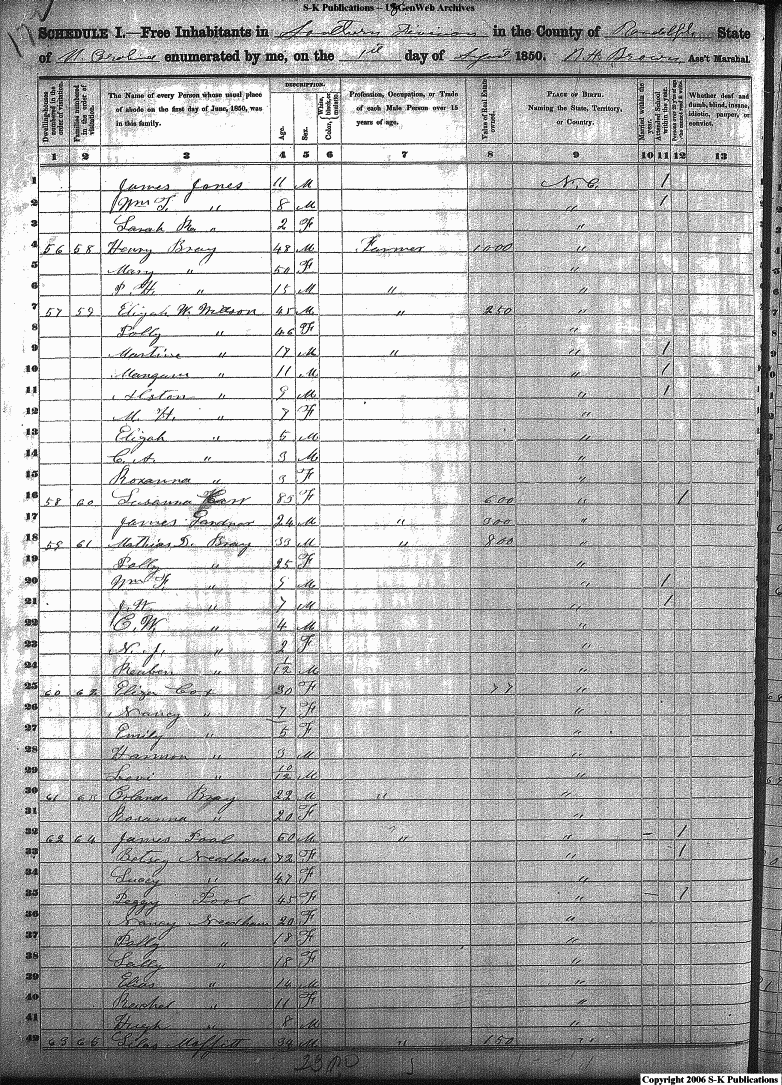 S-K Publications - USGenWeb Archives
SCHEDULE I.—Free Inhabitants in Southern Division in the County of Randolph State
of N. Carolina enumerated by me, on the 1st day of 1850. B. H. Brown Ass't Marshal.
DESCRIPTION.
Dwelling-houses numbered in the order of visitation. Families numbered in the order of visitation. The Name of every Person whose usual place of abode on the first day of June, 1850, was in this family. Age. Sex. Color, White, black, or mulatto. Profession, Occupation, or Trade of each Male Person over 15 years of age. Value of Real Estate owned. PLACE OF BIRTH. Naming the State, Territory, or Country. Married within the year. Attended School within the year. Persons over 20 y'rs of age who cannot read & write. Whether deaf and dumb, blind, insane, idiotic, pauper, or convict.
1 2 3 4 5 6 7 8 9 10 11 12 13
1 James Jones 11 M N.C. /
2 Wm T. " 8 M " /
3 Sarah " 2 F "
4 56 58 Henry Bray 48 M Farmer 1000 "
5 Mary " 50 F "
6 H. " 15 M " "
7 57 59 Elijah W. 45 M " 250 "
8 Polly " 46 F "
9 " 17 M " " /
10 Mangum " 11 M " /
11 Alston " 9 M " /
12 M. H. " 7 F "
13 Elijah " 5 M "
14 C. A. " 3 M "
15 Roxanna " 3 F "
16 58 60 Susanna 85 F 600 " /
17 James Gardner 24 M " 300 "
18 59 61 Mathias D. Bray 33 M " 800 "
19 Polly " 25 F "
20 Wm F. " 9 M " /
21 J. W. " 7 M " /
22 C. W. " 4 M "
23 N. J. " 2 F "
24 Reuben " 1/12 M "
25 60 62 Cox 30 F 77 "
26 Nancy " 7 F "
27 Emily " 5 F "
28 Harmon " 3 M "
29 Levi " 10/12 M "
30 61 63 Bray 22 " "
31 Rosanna " 20 F "
32 62 64 James Pool 60 M " " – /
33 Betsey Needham 72 F " /
34 Lucey " 47 F "
35 Peggy Pool 45 F " – /
36 Nancy Needham 20 F "
37 Polly " 18 F "
38 Sally " 18 F "
39 Elias " 14 M "
40 Rachel " 11 F "
41 Hugh " 8 M "
42 63 65 Silas Moffitt 34 M " 150 "
Copyright 2006 S-K Publications